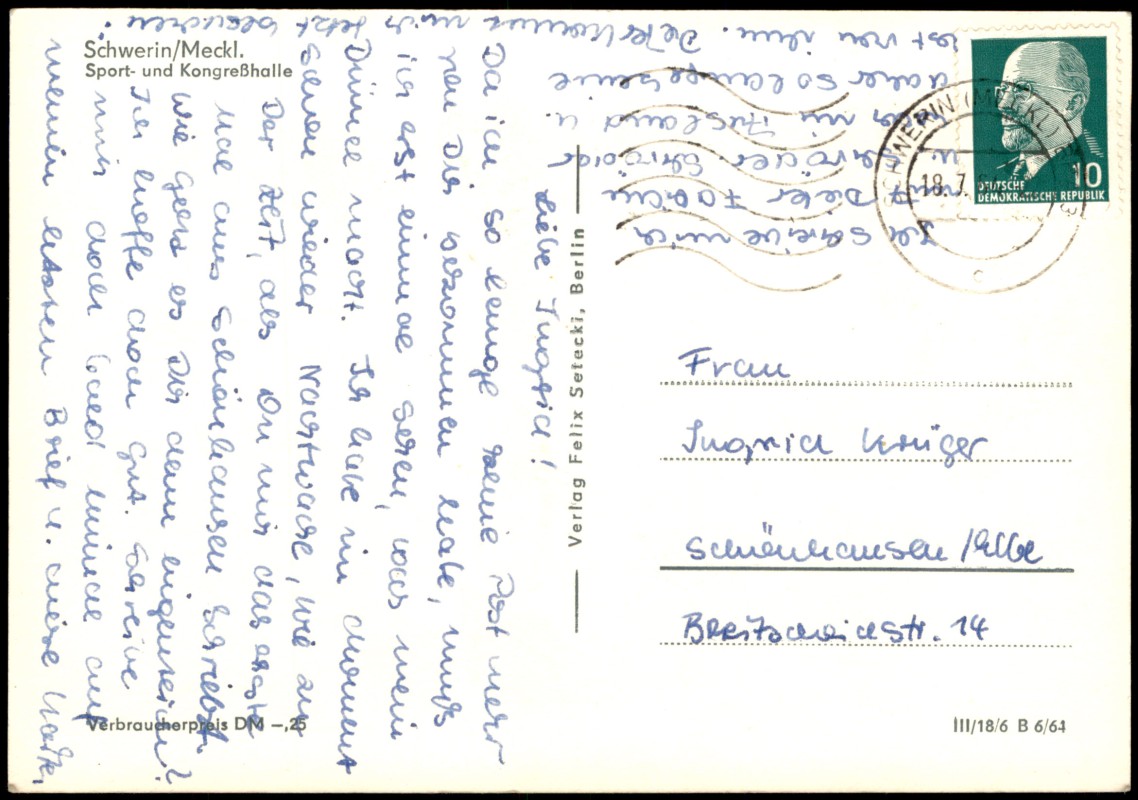 Schwerin/Meckl.
Sport- und Kongreßhalle
Liebe Ingrid!
Da ich so lange keine Post mehr
von Dir bekommen habe, muß
ich erst einmal sehen, was mein
macht. Ich habe im Moment
schon wieder Nachtwache, wie zu
Der Zeit, als Du mir das erste
Mal aus Schönhausen schriebst.
Wie geht es Dir denn eigentlich?
Ich hoffe doch gut. Schreibe
mir doch bald einmal auf
meinen letzten Brief u. diese Karte,
mich jetzt
Post von ihm. Dieter kommt
daher solange seine
ist er im Ausland u.
u. Schröder
mit Dieter
Ich schreibe mich
Verlag Felix Setecki, Berlin
SCHWERIN (MECKL)
18.7.
10
DEUTSCHE
DEMOKRATISCHE REPUBLIK
Frau
Ingrid Krüger
Schönhausen/Elbe
Breitscheidstr. 14
Verbraucherpreis DM –,25
III/18/6 B 6/64